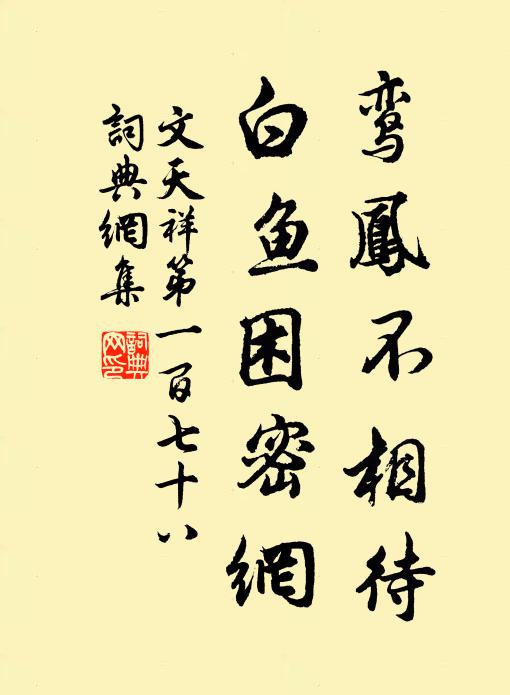 鸾鳳不相待
白鱼困密網
文天祥第一百七十八
詞典網集
詞典网印